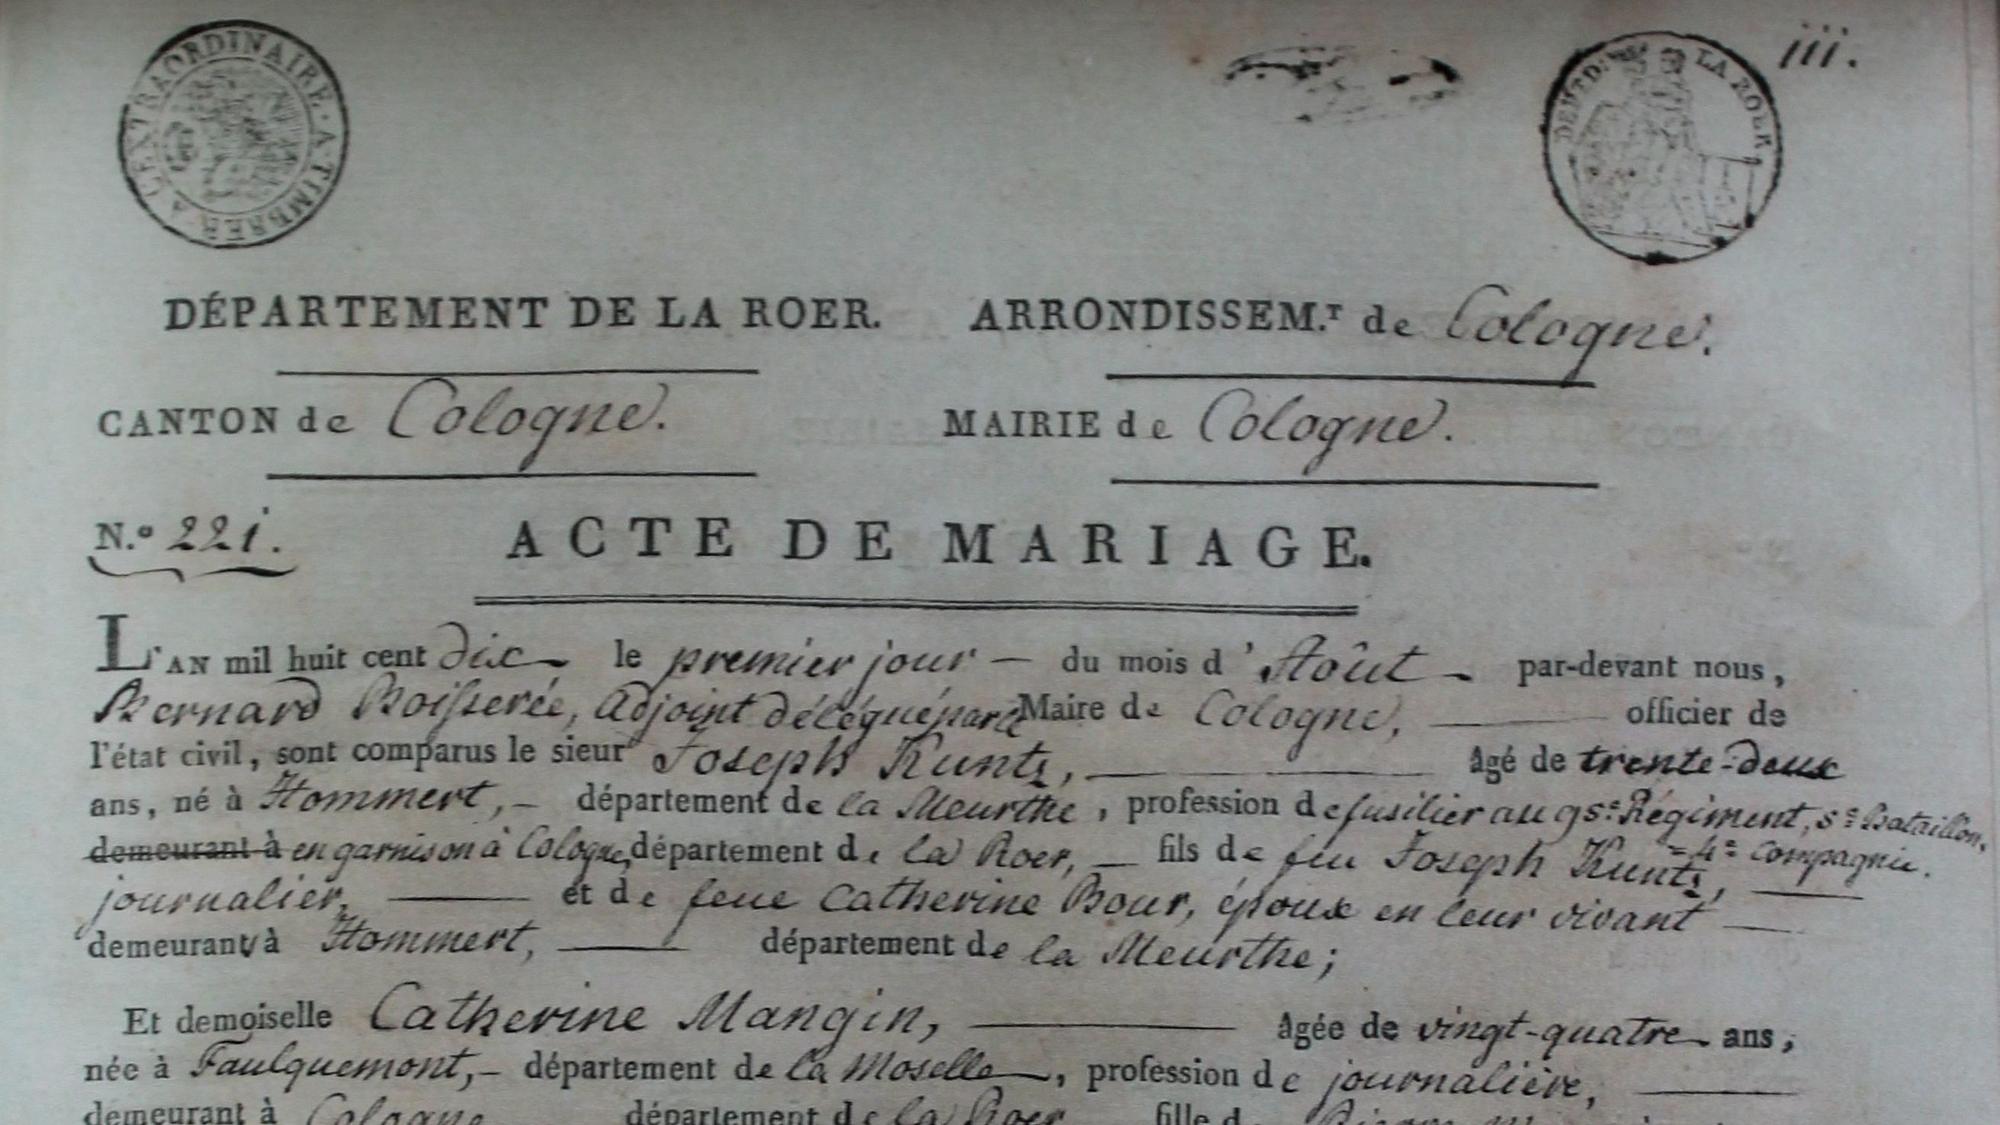 A L'EXTRAORDINAIRE. A TIMBRER
DEPT. D. LA ROER
iii.
DÉPARTEMENT DE LA ROER. ARRONDISSEM.T de Cologne.
CANTON de Cologne. MAIRIE de Cologne.
N.º 221. ACTE DE MARIAGE.
L'AN mil huit cent dix le premier jour — du mois d'Août par-devant nous,
Bernard Boisserée, Adjoint délégué par le Maire de Cologne, officier de
l'état civil, sont comparus le sieur Joseph Kuntz, âgé de trente-deux
ans, né à Hommert, — département de la Meurthe, profession de fusilier au 9s.e Régiment, s.e Bataillon,
demeurant à en garnison à Cologne, département de la Roer, — fils de feu Joseph Kuntz, 4.e Compagnie.
journalier, et de feue Catherine Bour, époux en leur vivant
demeurant à Hommert, département de la Meurthe;
Et demoiselle Catherine Mangin, âgée de vingt-quatre ans,
née à Faulquemont, — département de la Moselle, profession de journalière,
demeurant à Cologne département de la Roer fille d